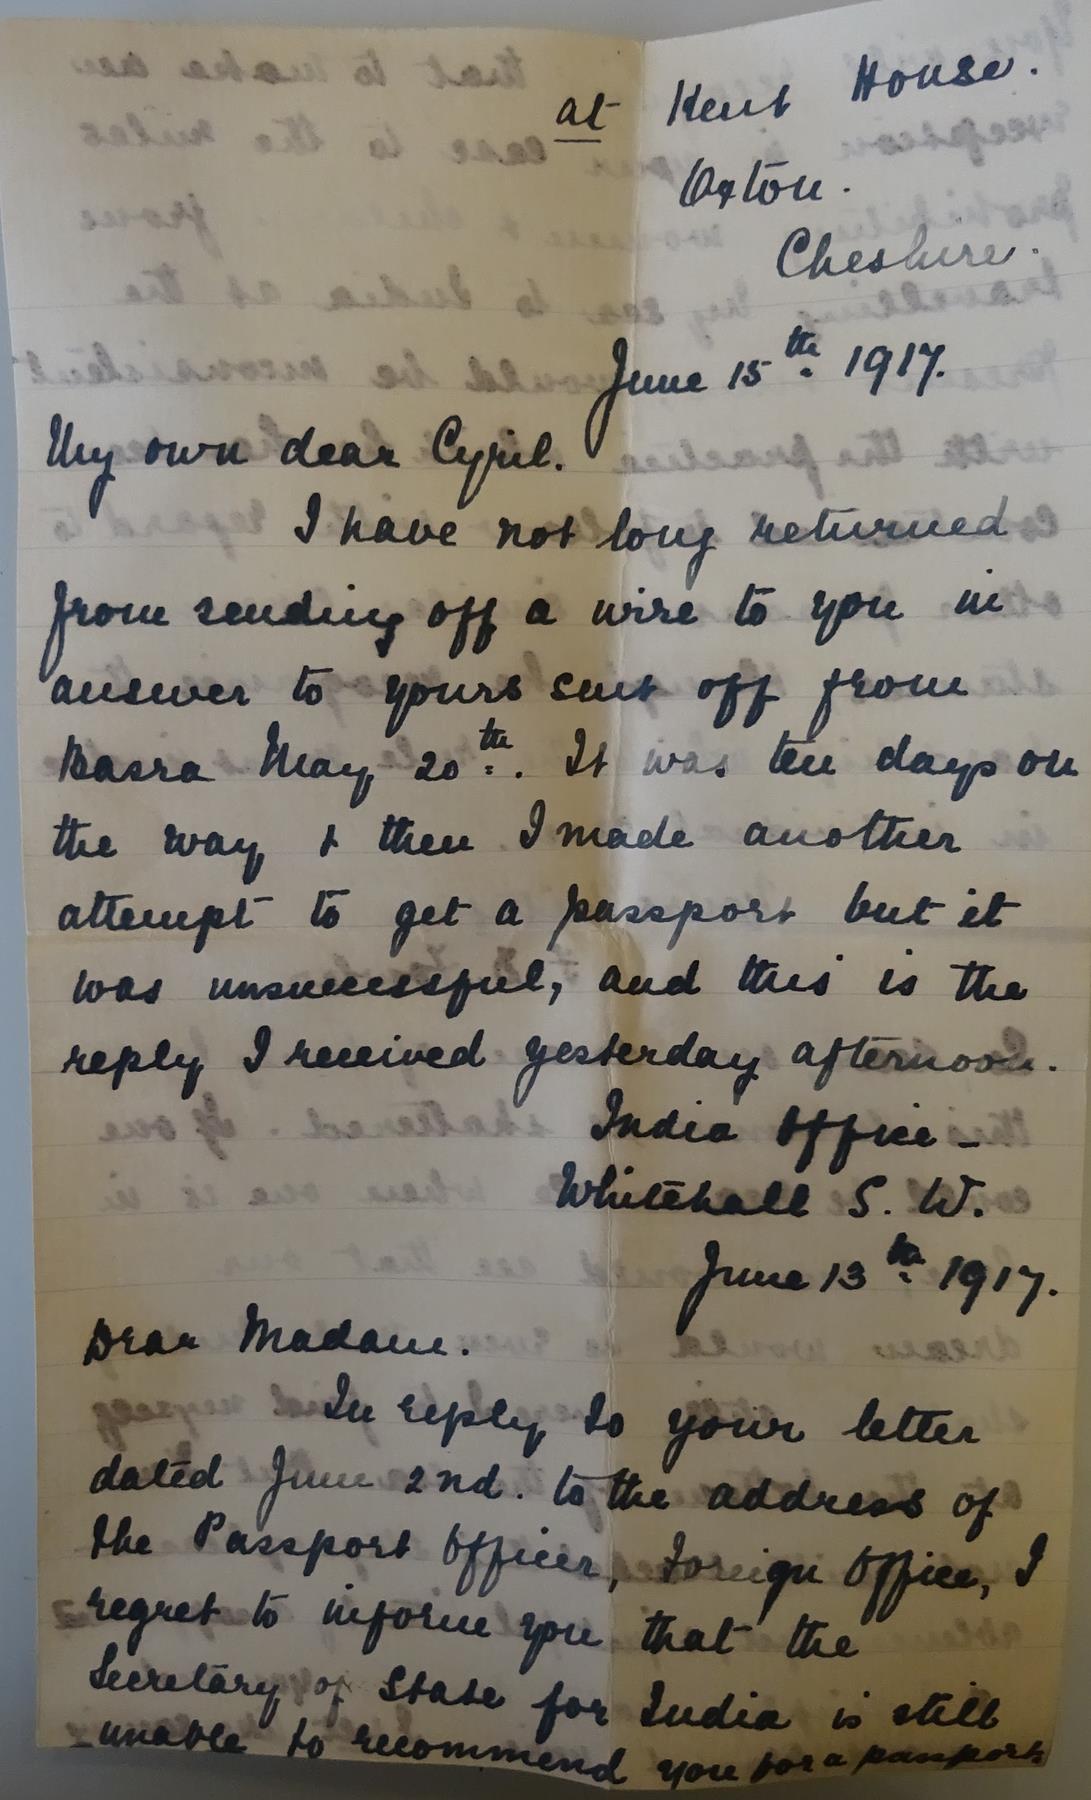 at Kent House.
Oxton.
Cheshire.
June 15th 1917.
My own dear Cyril.
I have not long returned
from sending off a wire to you in
answer to yours sent off from
Basra May 20th. It was ten days on
the way & then I made another
attempt to get a passport but it
was unsuccessful, and this is the
reply I received yesterday afternoon.
India Office -
Whitehall S. W.
June 13th 1917.
Dear Madam.
In reply to your letter
dated June 2nd. to the address of
the Passport Officer, Foreign Office, I
regret to inform you that the
Secretary of State for India is still
unable to recommend you for a passport